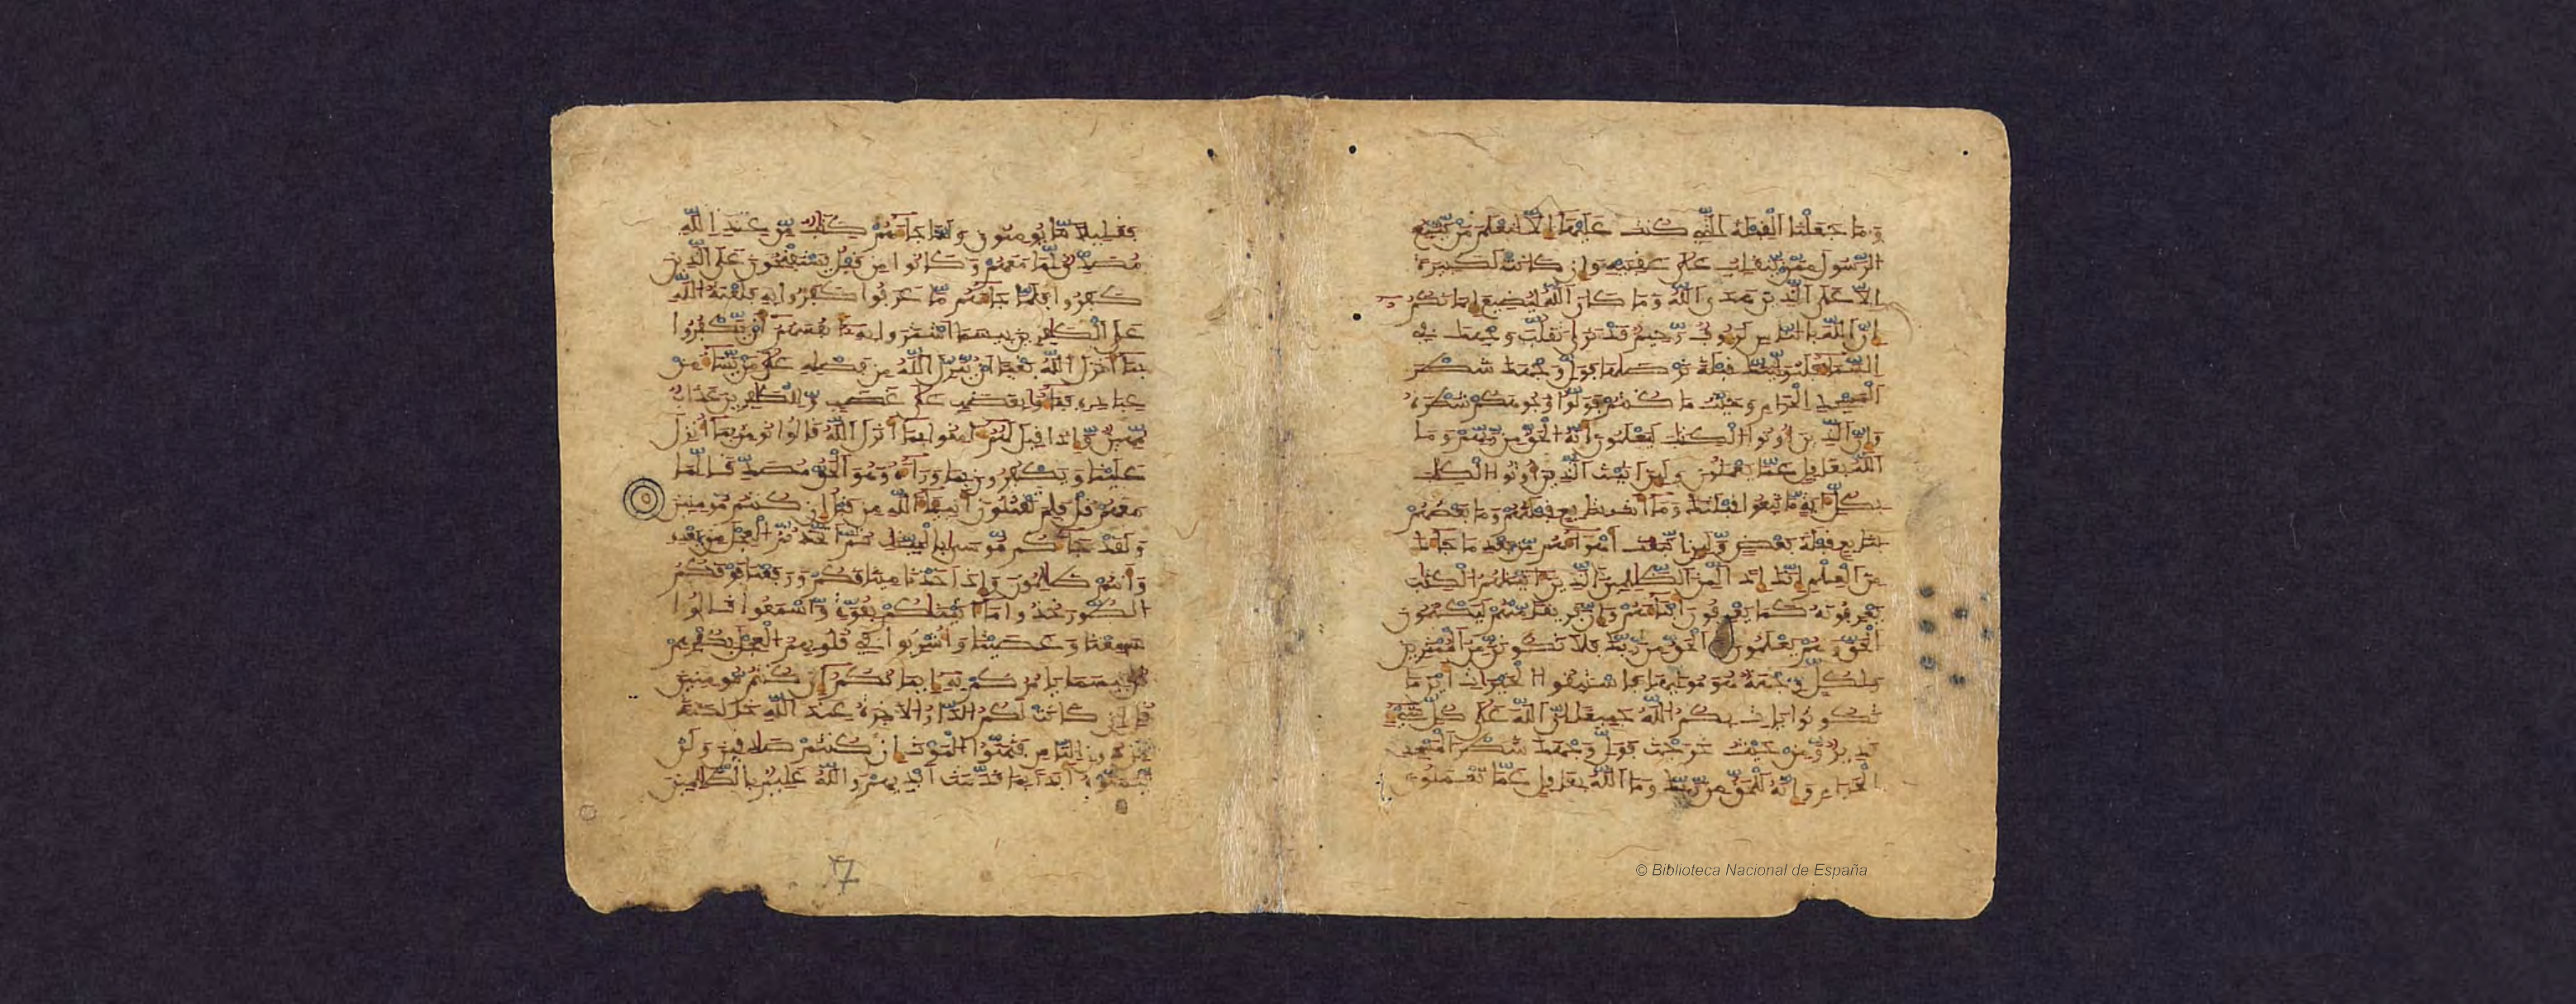 وما جعلنا القبلة التي كنت عليها إلا لنعلم من يتبع
الرسول ممن ينقلب على عقبيه وإن كانت لكبيرة
إلا على الذين هدى الله وما كان الله ليضيع إيمانكم
إن الله بالناس لرءوف رحيم قد نرى تقلب وجهك في
السماء فلنولينك قبلة ترضىها فول وجهك شطر
المسجد الحرام وحيث ما كنتم فولوا وجوهكم شطره
وإن الذين أوتوا الكتب ليعلمون أنه الحق من ربهم وما
الله بغفل عما يعملون ولئن أتيت الذين أوتوا الكتب
بكل ءاية ما تبعوا قبلتك وما أنت بتابع قبلتهم وما بعضهم
بتابع قبلة بعض ولئن اتبعت أهواءهم من بعد ما جاءك
من العلم إنك إذا لمن الظلمين الذين ءاتينهم الكتب
يعرفونه كما يعرفون أبناءهم وإن فريقا منهم ليكتمون
الحق وهم يعلمون الحق من ربك فلا تكونن من الممترين
ولكل وجهة هو موليها فاستبقوا الخيرات أين ما
تكونوا يأت بكم الله جميعا إن الله على كل شيء
قدير ومن حيث خرجت فول وجهك شطر المسجد
الحرام وإنه للحق من ربك وما الله بغفل عما تعملون
© Biblioteca Nacional de España
فقليلا ما يومنون ولما جاءهم كتب من عند الله
مصدق لما معهم وكانوا من قبل يستفتحون على الذين
كفروا فلما جاءهم ما عرفوا كفروا به فلعنة الله
على الكفرين بيسما اشتروا به أنفسهم أن يكفروا
بما أنزل الله بغيا أن ينزل الله من فضله على من يشاء من
عباده فباءو بغضب على غضب وللكفرين عذاب
مهين وإذا قيل لهم ءامنوا بما أنزل الله قالوا نومن بما أنزل
علينا ويكفرون بما وراءه وهو الحق مصدقا لما
معهم قل فلم تقتلون أنبئاء الله من قبل إن كنتم مومنين
ولقد جاءكم موسى بالبينت ثم اتخذتم العجل من بعده
وأنتم ظلمون وإذ أخذنا ميثقكم ورفعنا فوقكم
الطور خذوا ما ءاتينكم بقوة واسمعوا قالوا
سمعنا وعصينا وأشربوا في قلوبهم العجل بكفرهم
قل بيسما يامركم به إيمانكم إن كنتم مومنين
قل إن كانت لكم الدار الاخرة عند الله خالصة
من دون الناس فتمنوا الموت إن كنتم صدقين ولن
يتمنوه أبدا بما قدمت أيديهم والله عليم بالظلمين
17